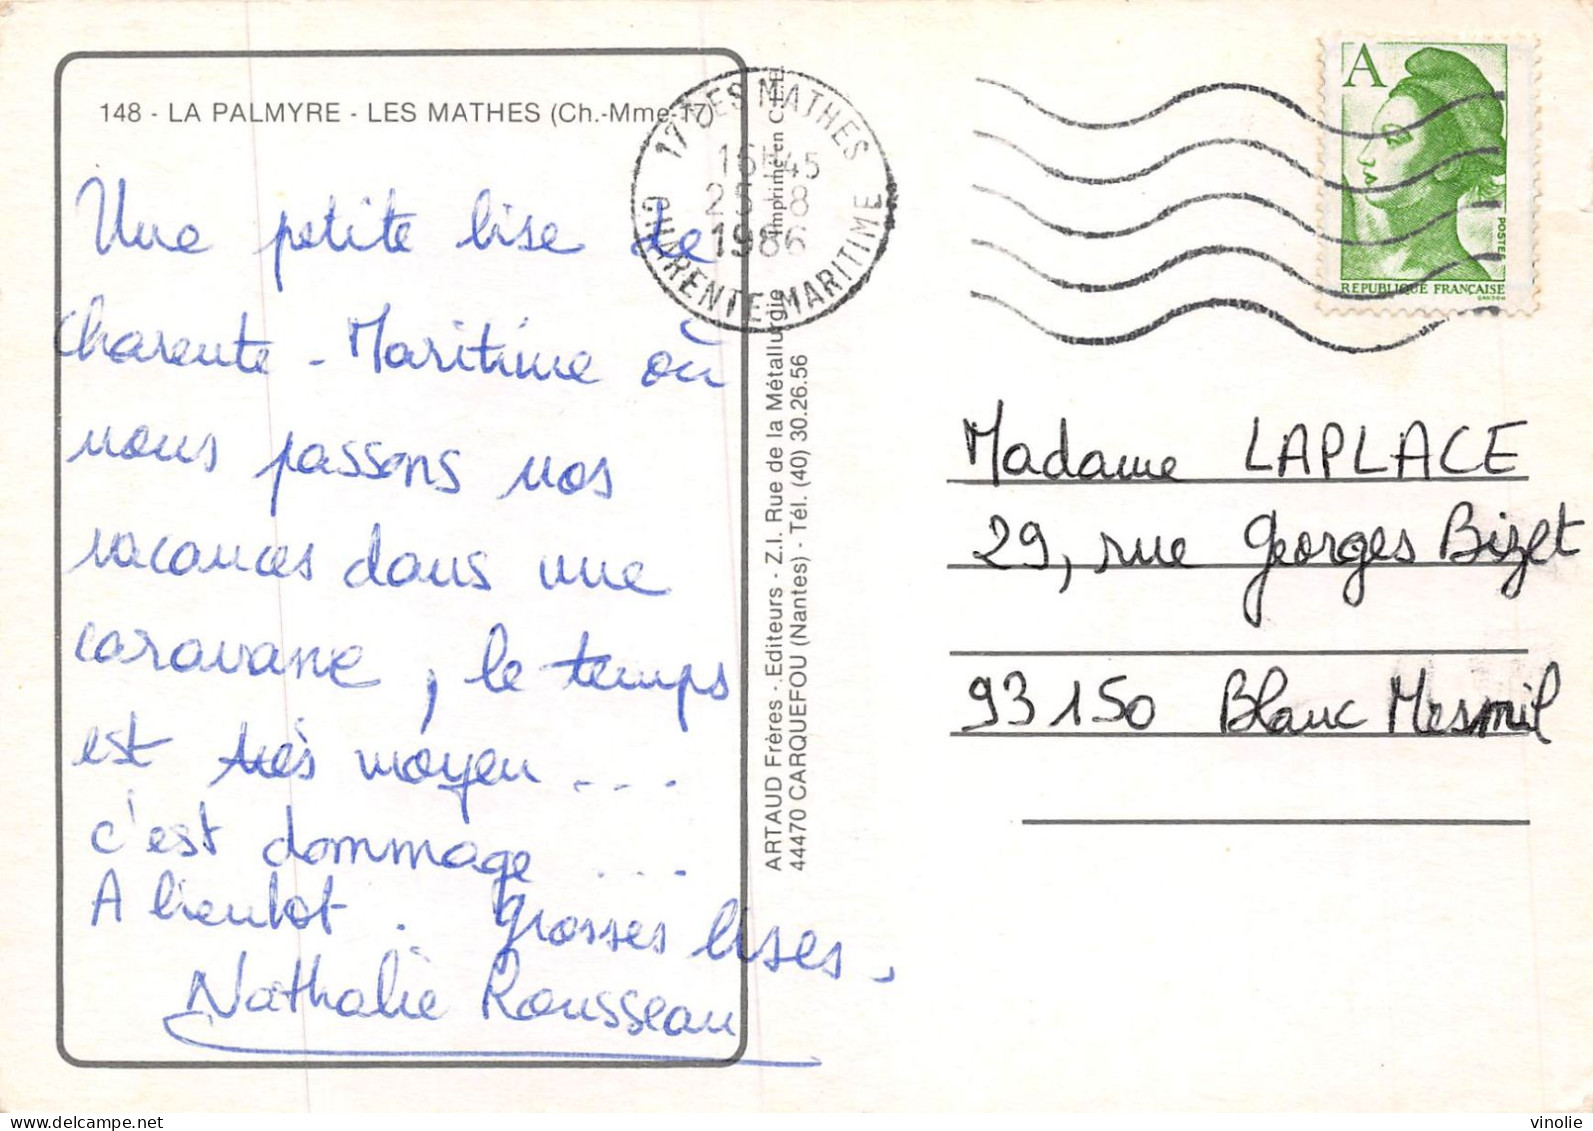 148 - LA PALMYRE - LES MATHES (Ch.-Mme-17)
Une petite bise de
Charente - Maritime où
nous passons nos
vacances dans une
caravane, le temps
est très moyen ...
c'est dommage ...
A bientot. Grosses bises.
Nathalie Rousseau
17 LES MATHES
16H45
25 - 8
1986
CHARENTE-MARITIME
Imprimé en C.E.E.
ARTAUD Frères - Editeurs - Z.I. Rue de la Métallurgie
44470 CARQUEFOU (Nantes) - Tél. (40) 30.26.56
A
POSTES
REPUBLIQUE FRANÇAISE
GANDON
Madame LAPLACE
29, rue Georges Bizet
93150 Blanc Mesnil
vinolie